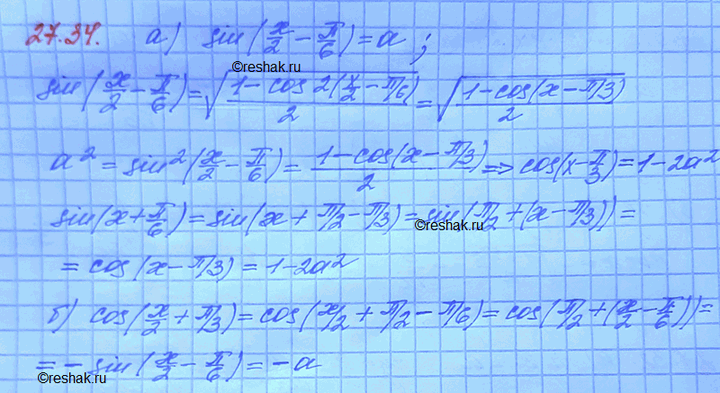 27.34. а) sin(x/2 - π/6) = a ;
©reshak.ru
sin(x/2 - π/6) = √((1-cos 2(x/2 - π/6))/2) = √((1-cos(x-π/3))/2)
a² = sin²(x/2 - π/6) = (1-cos(x-π/3))/2 => cos(x-π/3) = 1-2a²
sin(x+π/6) = sin(x+π/2-π/3) = sin(π/2+(x-π/3)) =
©reshak.ru
= cos(x-π/3) = 1-2a²
б) cos(x/2 + π/3) = cos(x/2 + π/2 - π/6) = cos(π/2 + (x/2 - π/6)) =
= - sin(x/2 - π/6) = -a
©reshak.ru